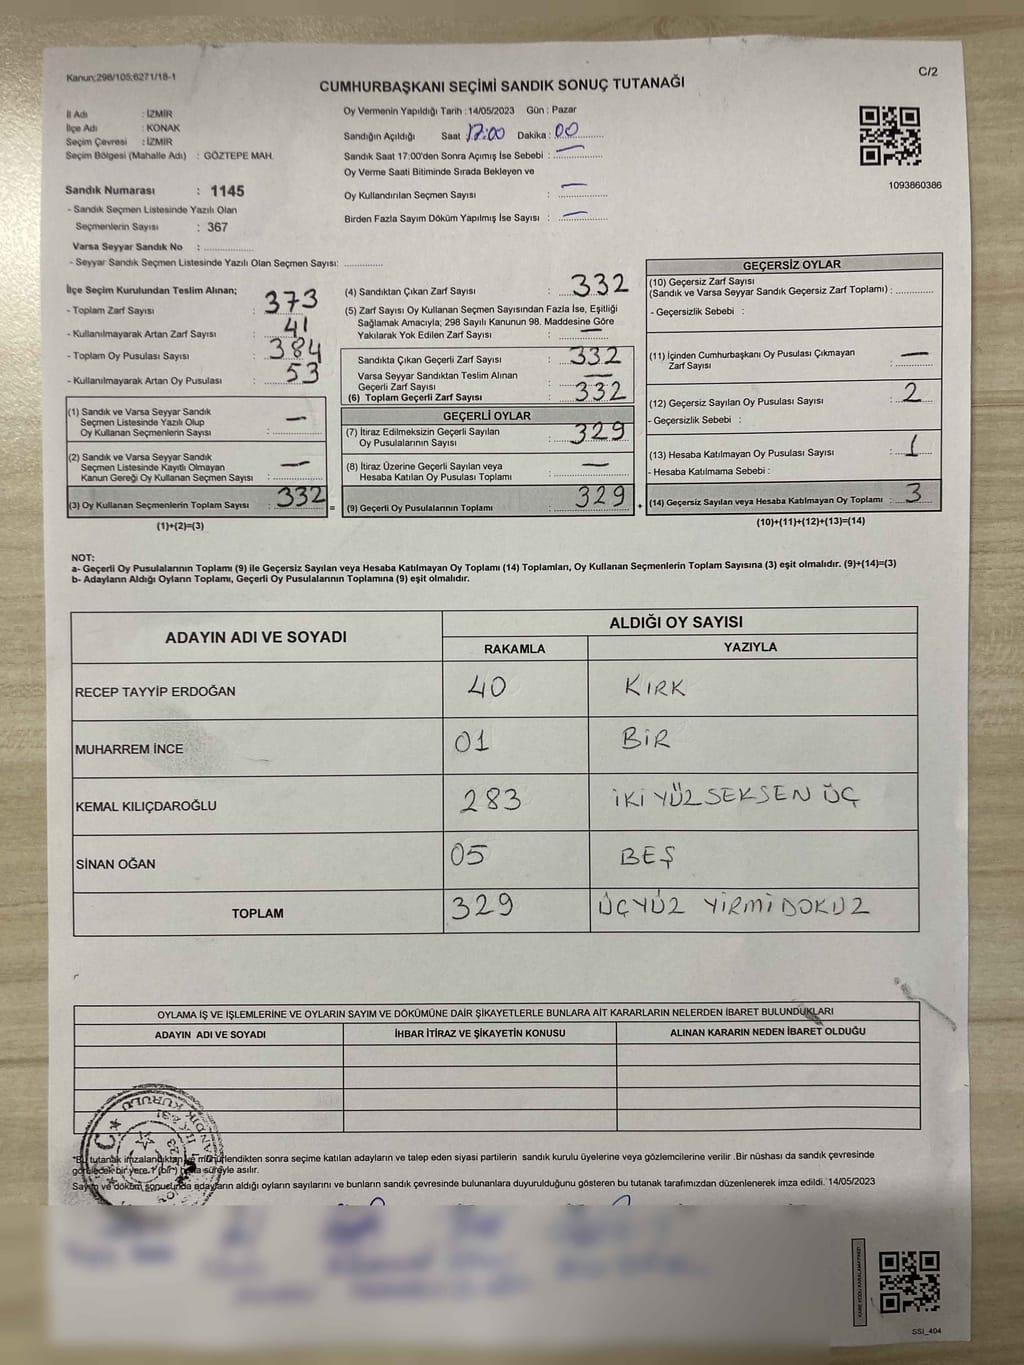 Kanun;298/105;6271/18-1
C/2
CUMHURBAŞKANI SEÇİMİ SANDIK SONUÇ TUTANAĞI
İl Adı : İZMİR
İlçe Adı : KONAK
Seçim Çevresi : İZMİR
Seçim Bölgesi (Mahalle Adı) : GÖZTEPE MAH.
Sandık Numarası : 1145
- Sandık Seçmen Listesinde Yazılı Olan
Seçmenlerin Sayısı : 367
Varsa Seyyar Sandık No : ..............
- Seyyar Sandık Seçmen Listesinde Yazılı Olan Seçmen Sayısı: ............
Oy Vermenin Yapıldığı Tarih : 14/05/2023 Gün : Pazar
Sandığın Açıldığı Saat 17:00 Dakika : 00
Sandık Saat 17:00'den Sonra Açımış İse Sebebi : —
Oy Verme Saati Bitiminde Sırada Bekleyen ve
Oy Kullandırılan Seçmen Sayısı : —
Birden Fazla Sayım Döküm Yapılmış İse Sayısı : —
1093860386
İlçe Seçim Kurulundan Teslim Alınan;
- Toplam Zarf Sayısı : 373
- Kullanılmayarak Artan Zarf Sayısı : 41
- Toplam Oy Pusulası Sayısı : 384
- Kullanılmayarak Artan Oy Pusulası : 53
(1) Sandık ve Varsa Seyyar Sandık
Seçmen Listesinde Yazılı Olup
Oy Kullanan Seçmenlerin Sayısı : —
(2) Sandık ve Varsa Seyyar Sandık
Seçmen Listesinde Kayıtlı Olmayan
Kanun Gereği Oy Kullanan Seçmen Sayısı : —
(3) Oy Kullanan Seçmenlerin Toplam Sayısı : 332 =
(1)+(2)=(3)
(4) Sandıktan Çıkan Zarf Sayısı : 332
(5) Zarf Sayısı Oy Kullanan Seçmen Sayısından Fazla İse, Eşitliği
Sağlamak Amacıyla; 298 Sayılı Kanunun 98. Maddesine Göre
Yakılarak Yok Edilen Zarf Sayısı : —
Sandıkta Çıkan Geçerli Zarf Sayısı : 332
Varsa Seyyar Sandıktan Teslim Alınan
Geçerli Zarf Sayısı : —
(6) Toplam Geçerli Zarf Sayısı : 332
GEÇERLİ OYLAR
(7) İtiraz Edilmeksizin Geçerli Sayılan
Oy Pusulalarının Sayısı : 329
(8) İtiraz Üzerine Geçerli Sayılan veya
Hesaba Katılan Oy Pusulası Toplamı : —
(9) Geçerli Oy Pusulalarının Toplamı : 329 +
GEÇERSİZ OYLAR
(10) Geçersiz Zarf Sayısı
(Sandık ve Varsa Seyyar Sandık Geçersiz Zarf Toplamı) : ............
- Geçersizlik Sebebi :
(11) İçinden Cumhurbaşkanı Oy Pusulası Çıkmayan
Zarf Sayısı : —
(12) Geçersiz Sayılan Oy Pusulası Sayısı : 2
- Geçersizlik Sebebi :
(13) Hesaba Katılmayan Oy Pusulası Sayısı : 1
- Hesaba Katılmama Sebebi :
(14) Geçersiz Sayılan veya Hesaba Katılmayan Oy Toplamı : 3
(10)+(11)+(12)+(13)=(14)
NOT:
a- Geçerli Oy Pusulalarının Toplamı (9) ile Geçersiz Sayılan veya Hesaba Katılmayan Oy Toplamı (14) Toplamları, Oy Kullanan Seçmenlerin Toplam Sayısına (3) eşit olmalıdır. (9)+(14)=(3)
b- Adayların Aldığı Oyların Toplamı, Geçerli Oy Pusulalarının Toplamına (9) eşit olmalıdır.
ADAYIN ADI VE SOYADI ALDIĞI OY SAYISI
RAKAMLA YAZIYLA
RECEP TAYYİP ERDOĞAN 40 KIRK
MUHARREM İNCE 01 BİR
KEMAL KILIÇDAROĞLU 283 İKİ YÜZ SEKSEN ÜÇ
SİNAN OĞAN 05 BEŞ
TOPLAM 329 ÜÇYÜZ YİRMİDOKUZ
OYLAMA İŞ VE İŞLEMLERİNE VE OYLARIN SAYIM VE DÖKÜMÜNE DAİR ŞİKAYETLERLE BUNLARA AİT KARARLARIN NELERDEN İBARET BULUNDUKLARI
ADAYIN ADI VE SOYADI İHBAR İTİRAZ VE ŞİKAYETİN KONUSU ALINAN KARARIN NEDEN İBARET OLDUĞU
*Bu tutanak imzalandıktan ve mühürlendikten sonra seçime katılan adayların ve talep eden siyasi partilerin sandık kurulu üyelerine veya gözlemcilerine verilir .Bir nüshası da sandık çevresinde
görülecek bir yere 1 (bir) hafta süreyle asılır.
Sayım ve döküm sonucunda adayların aldığı oyların sayılarını ve bunların sandık çevresinde bulunanlara duyurulduğunu gösteren bu tutanak tarafımızdan düzenlenerek imza edildi. 14/05/2023
SSİ_404